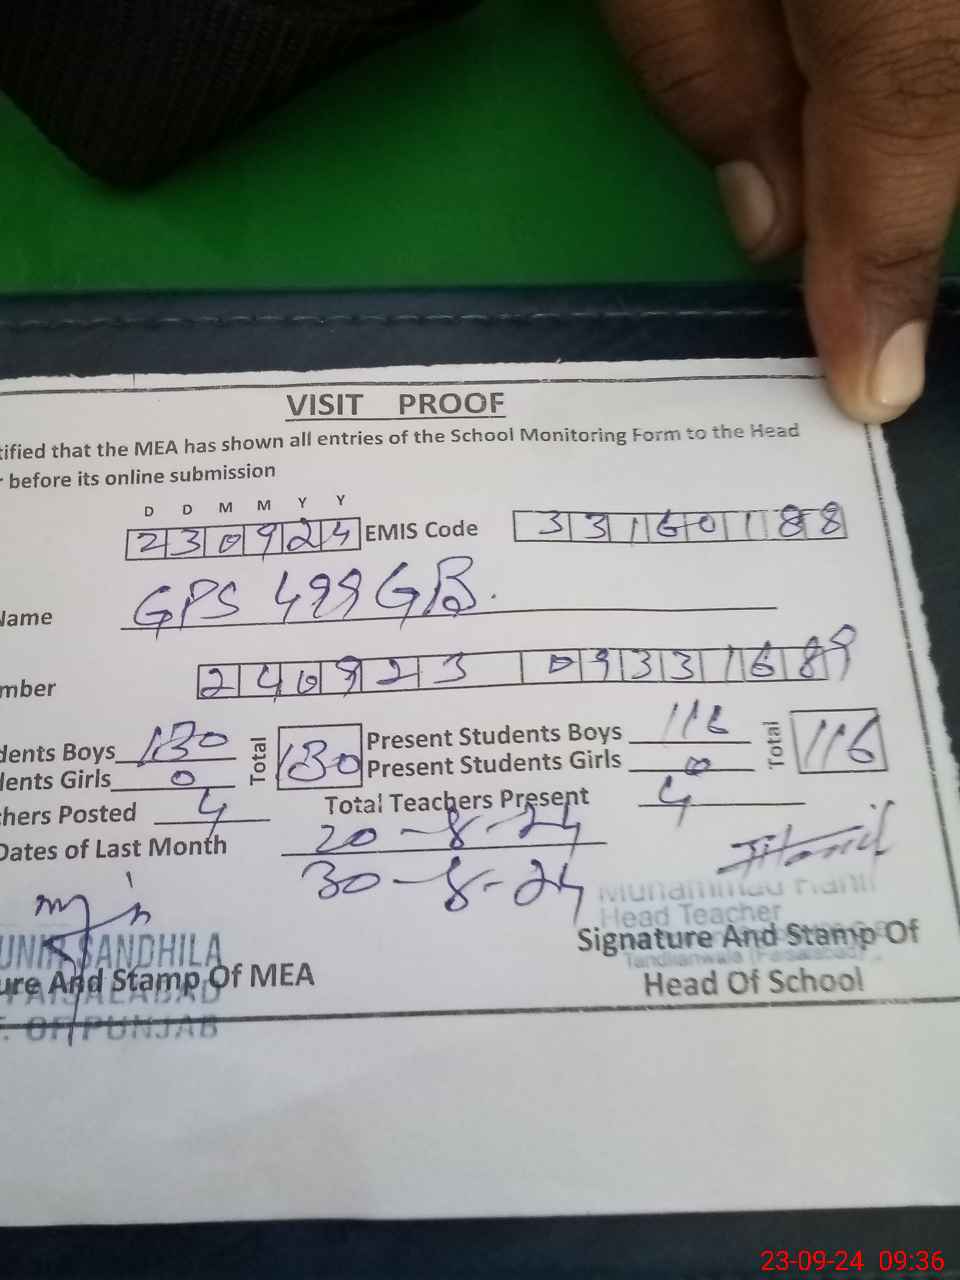 VISIT PROOF
tified that the MEA has shown all entries of the School Monitoring Form to the Head
r before its online submission
D D M M Y Y
230924 EMIS Code 33160188
Name GPS 499 GB.
mber 240923 09331689
dents Boys 130 Total 130 Present Students Boys 116 Total 116
dents Girls 0 Present Students Girls 0
hers Posted 4 Total Teachers Present 4
Dates of Last Month 20-8-24
30-8-24
Muhammad Hanif
Head Teacher
UNIR SANDHILA Signature And Stamp Of
Tandlianwala (Faisalabad)
ure And Stamp Of MEA Head Of School
FAISALABAD
. OF PUNJAB
23-09-24 09:36